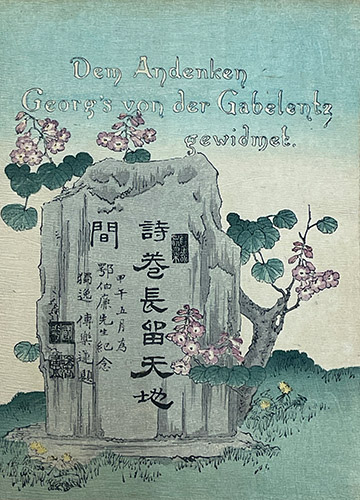 Dem Andenken
Georg's von der Gabelentz
gewidmet.
詩卷長留天地
間
甲午五月為
鄂伯廉先生紀念
獨逸 傅樂運題